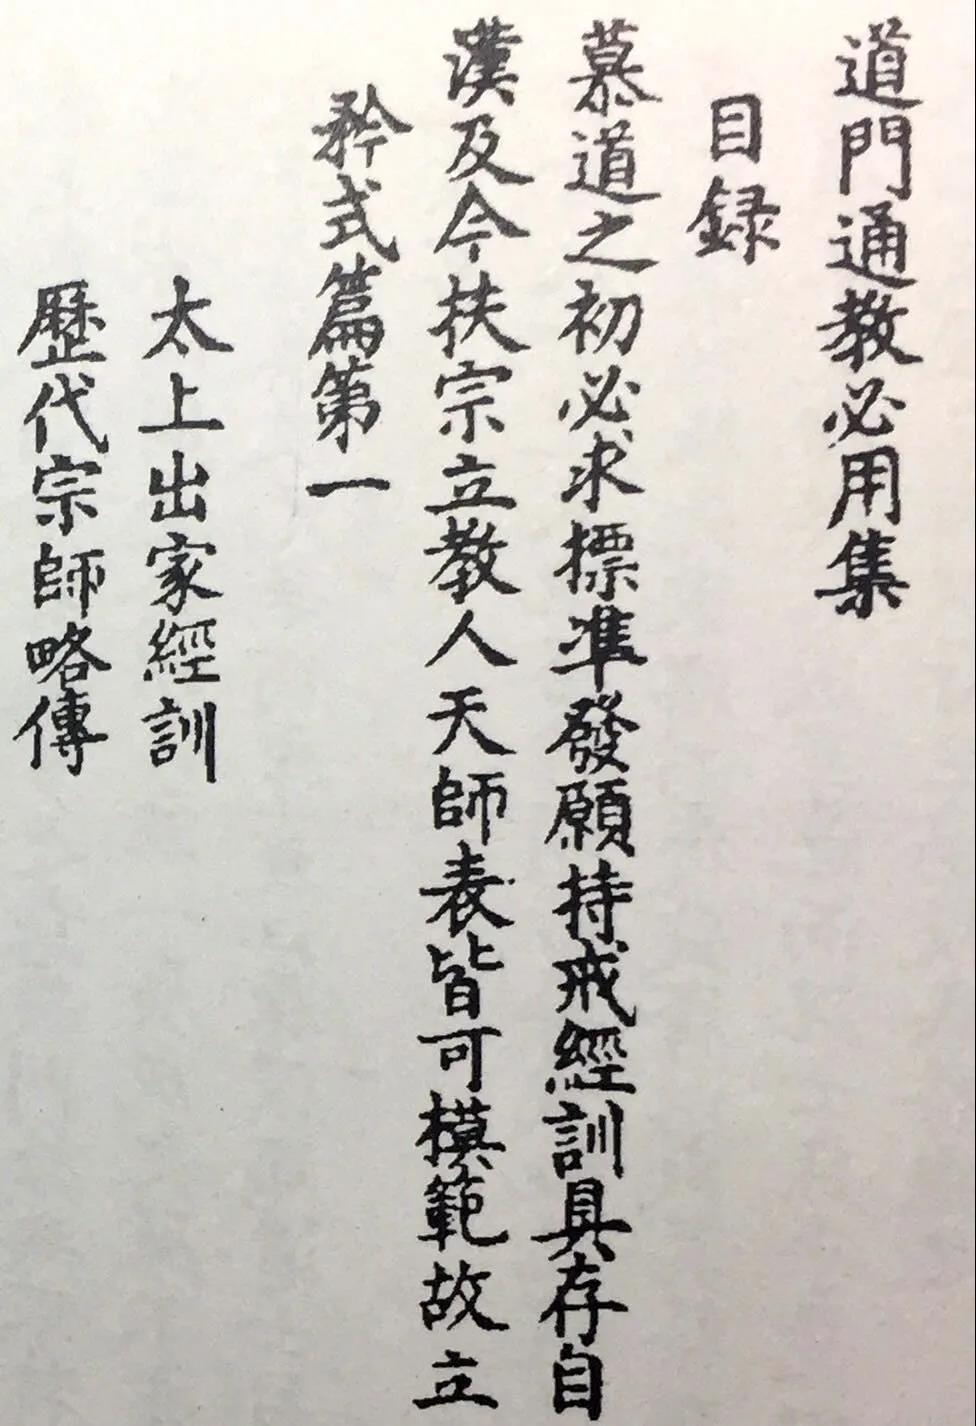 道門通教必用集
目録
慕道之初必求標準發願持戒經訓具存自
漢及今扶宗立教人天師表皆可模範故立
矜式篇第一
太上出家經訓
歷代宗師略傳